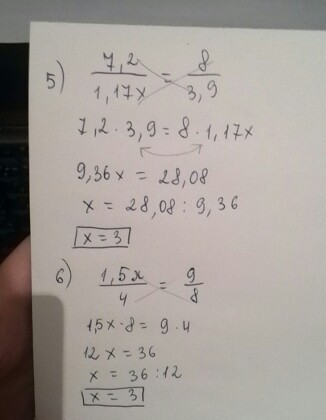 5) 7,2 / 1,17x = 8 / 3,9
7,2 · 3,9 = 8 · 1,17x
9,36x = 28,08
x = 28,08 : 9,36
x = 3
6) 1,5x / 4 = 9 / 8
1,5x · 8 = 9 · 4
12x = 36
x = 36 : 12
x = 3